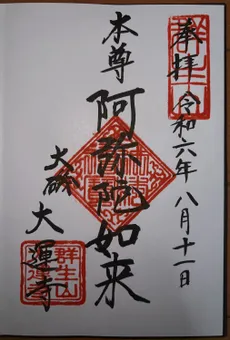 奉拝
令和六年八月十一日
本尊
阿弥陀如来
大磯
大運寺
群生山